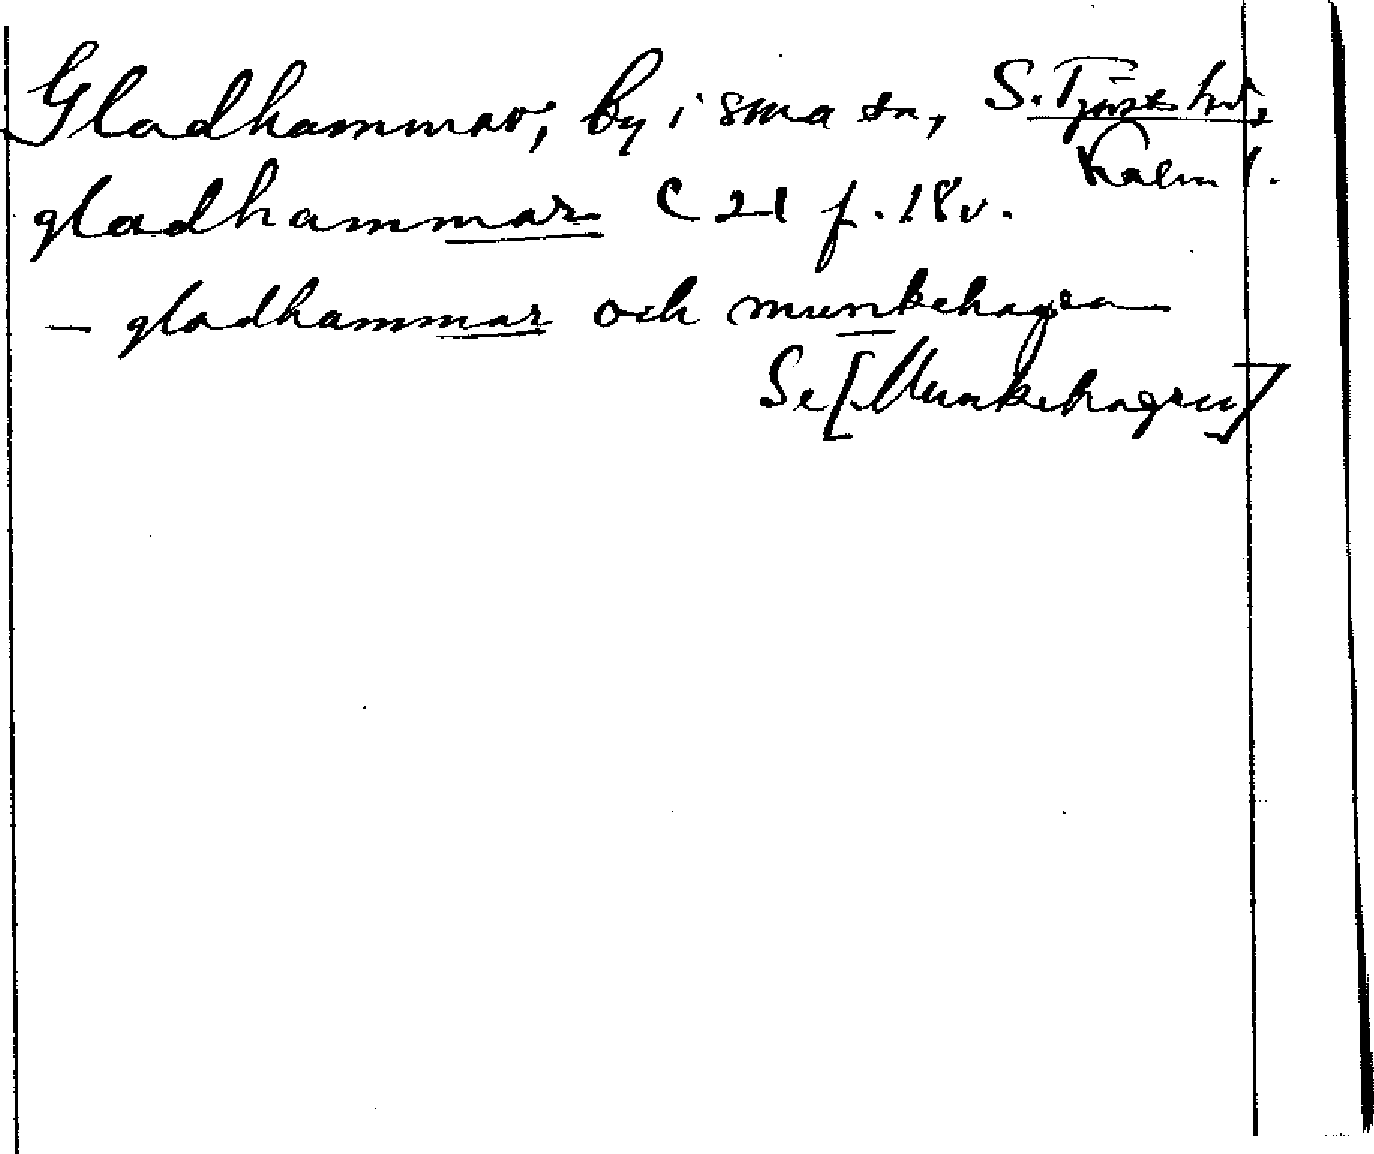 Gladhammar, by i sma sn, S. Tjust hd,
Kalm l.
gladhammar C 21 f. 18v.
— gladhammar och munkehagra
Se [Munkehagen]